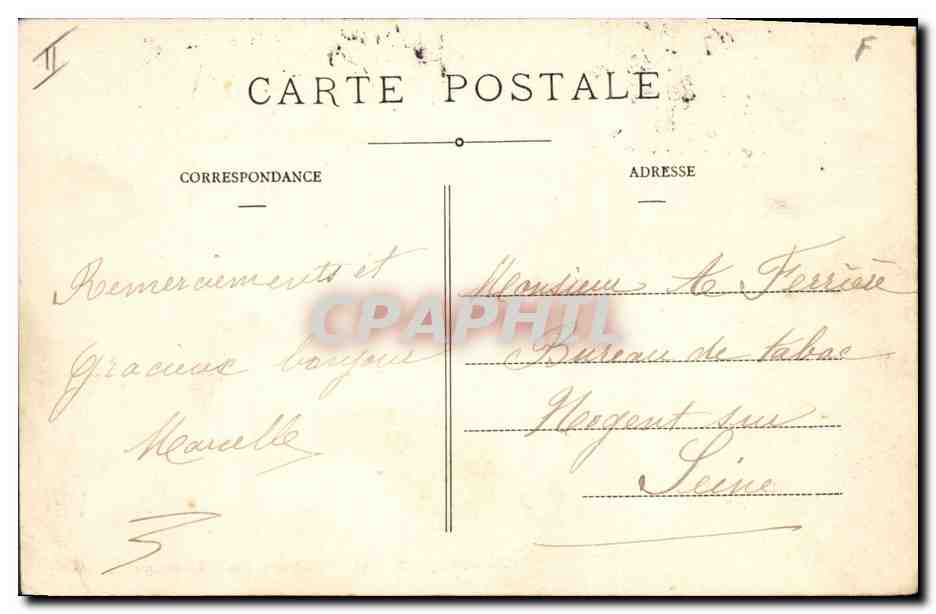 II
F
CARTE POSTALE
CORRESPONDANCE
Remerciements et
gracieux bonjour
Marcelle
ADRESSE
Monsieur A Ferrière
Bureau de tabac
Nogent sur
Seine
CPAPHIL